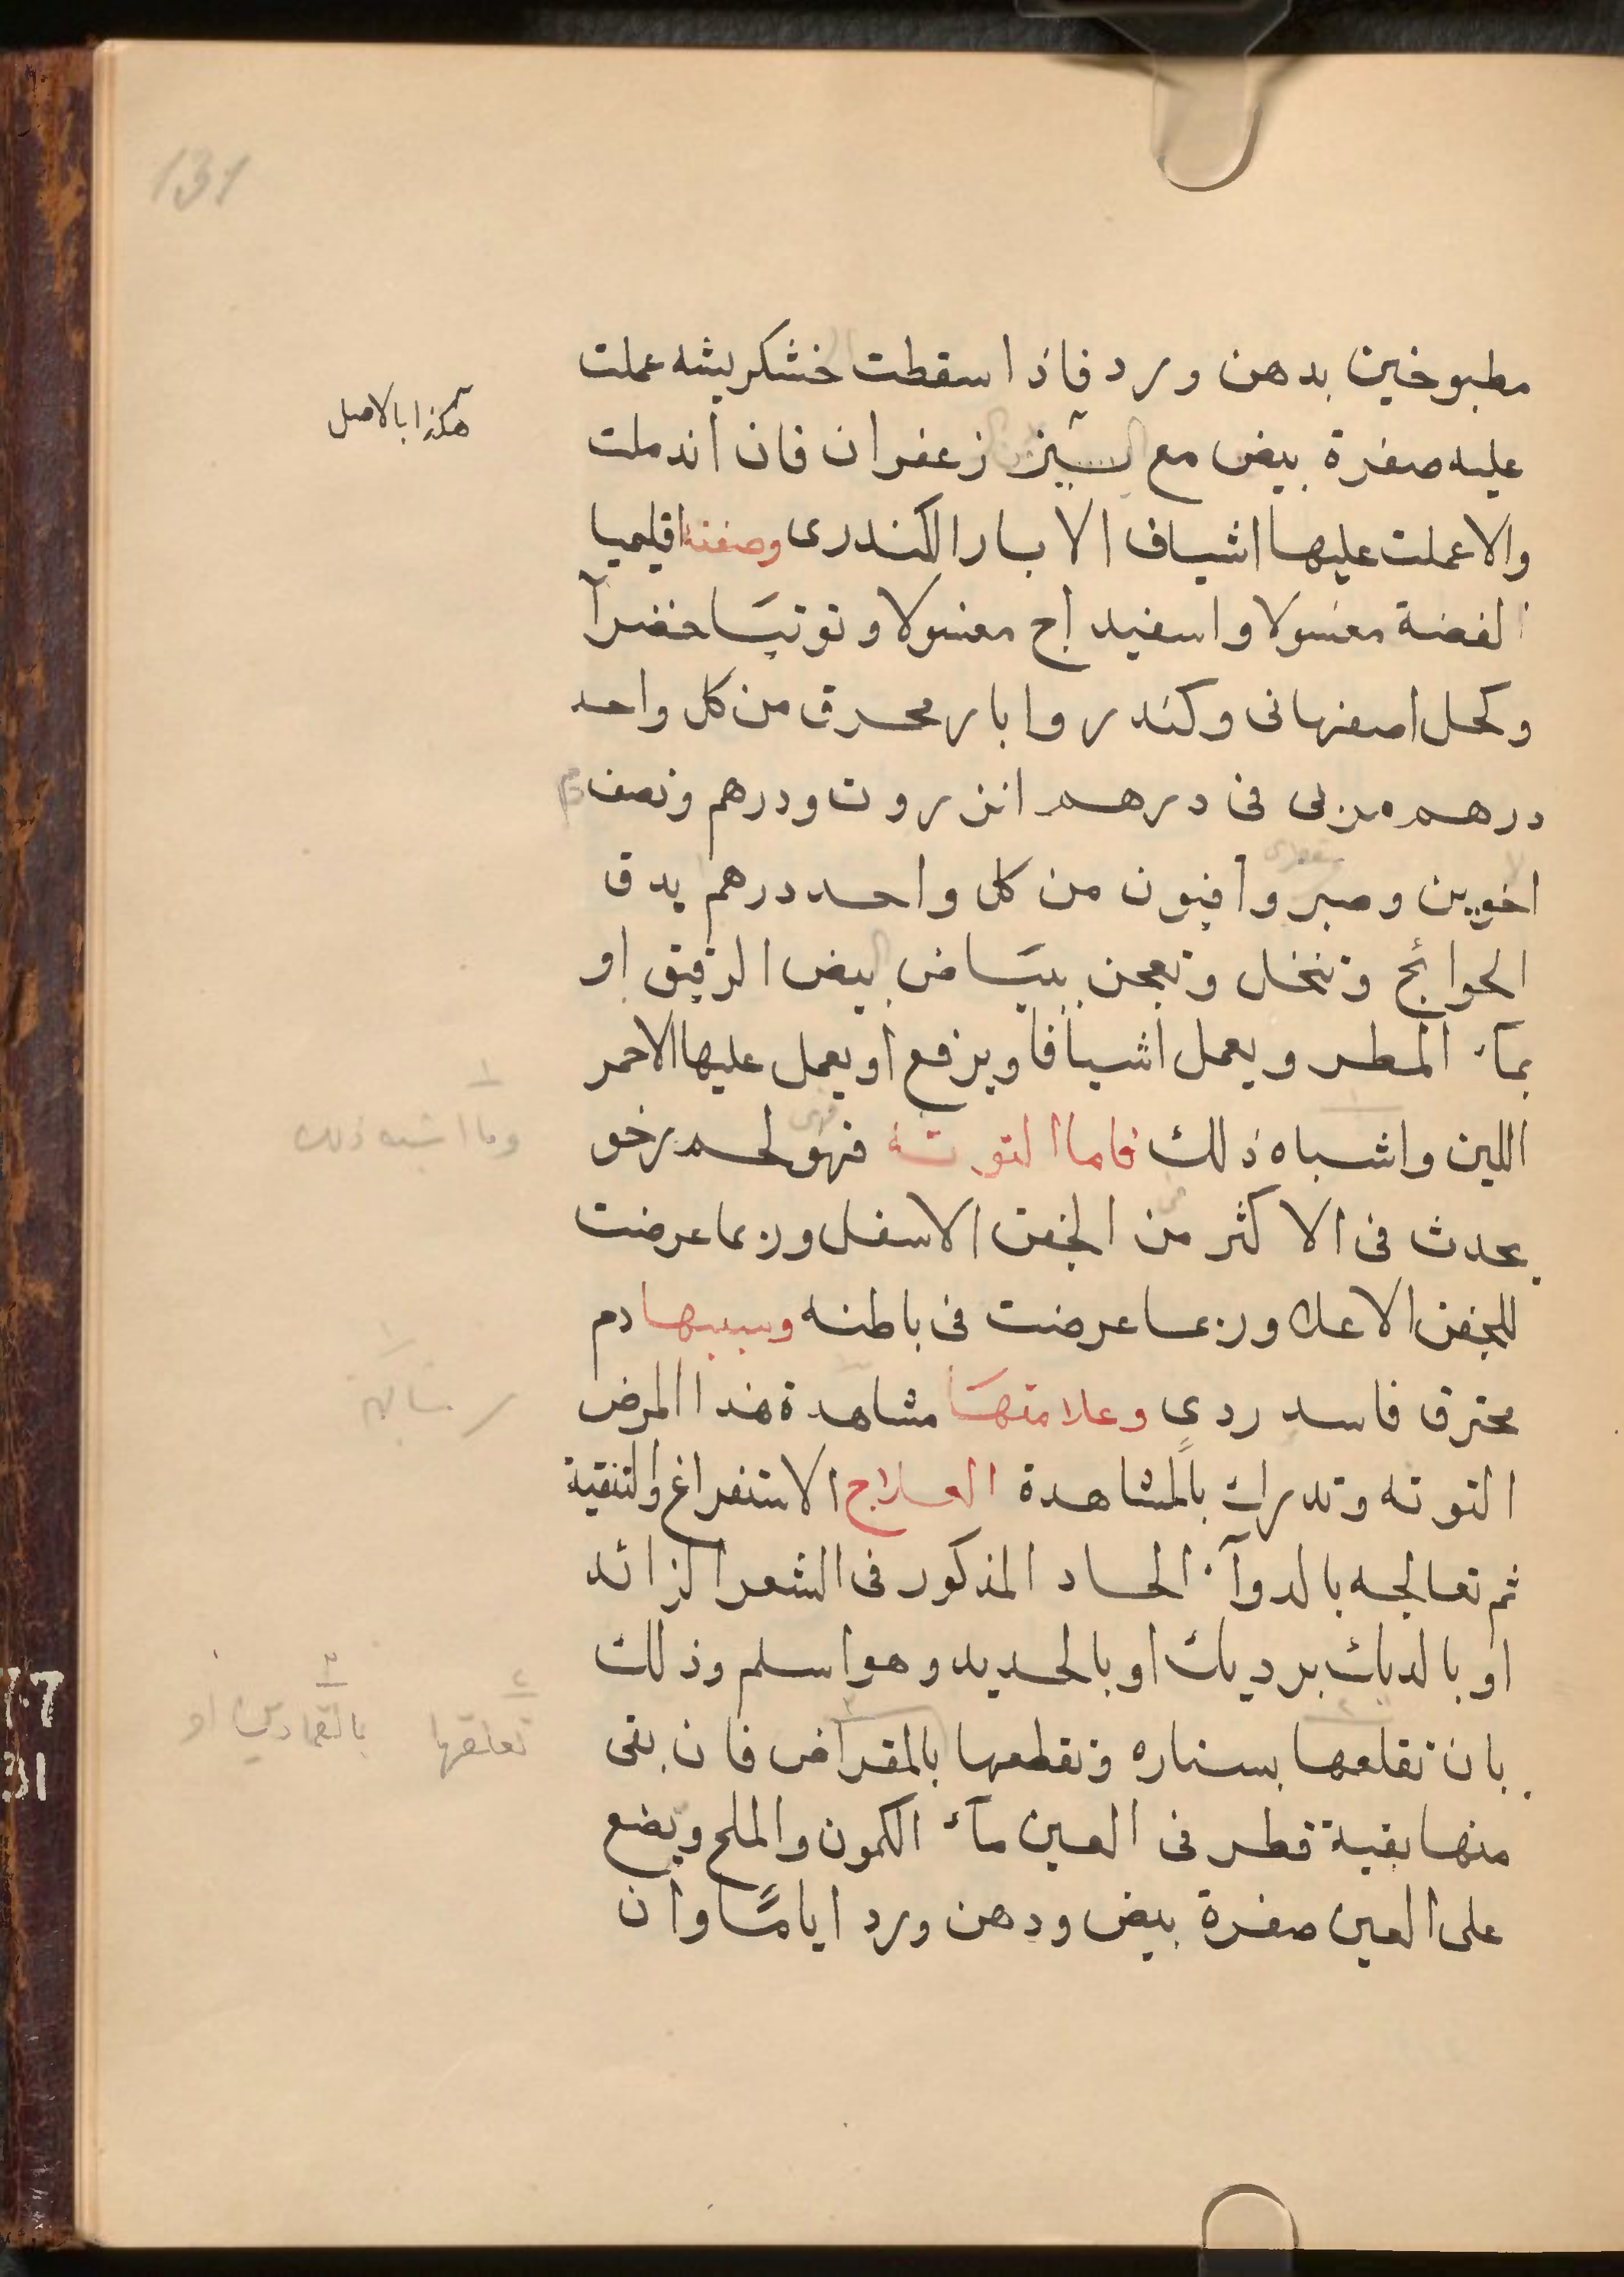 131
مطبوخين بدهن ورد فاذا سقطت خشكريشه عملت
هكذا بالاصل
عليه صفرة بيض مع زعفران فان اندملت
والا عملت عليها اشياف الابار الكندرى وصفته اقليميا
الفضة مغسولا واسفيداج مغسولا وتوتيا خضرآ
وكحل اصفهانى وكندر وابار محرق من كل واحد
درهم مربى فى درهم انزروت ودرهم ونصف دم
اخوين وصبر وافيون من كل واحد درهم يدق
الحوائج وتنخل وتعجن ببياض البيض الرقيق او
بمآء المطر ويعمل اشيافا ويرفع او يعمل عليها الاحمر
اللين واشباه ذلك فاما التوتة فهو لحم رخو
وما اشبه ذلك
يحدث فى الاكثر من الجفن الاسفل وربما عرضت
للجفن الاعلا وربما عرضت فى باطنه وسببها دم
محترق فاسد ردى وعلامتها مشاهدة هذا المرض
التوته وتدرك بالمشاهدة العلاج الاستفراغ والتنقية
ثم تعالجه بالدوآء الحاد المذكور فى الشعر الزائد
او بالديك برديك او بالحديد وهو اسلم وذلك
بان تقلعها بسناره وتقطعها بالمقراض فان بقى
تعلقها
بالقمادين او
منها بقية قطر فى العين مآء الكمون والملح ويضع
على العين صفرة بيض ودهن ورد اياما وان